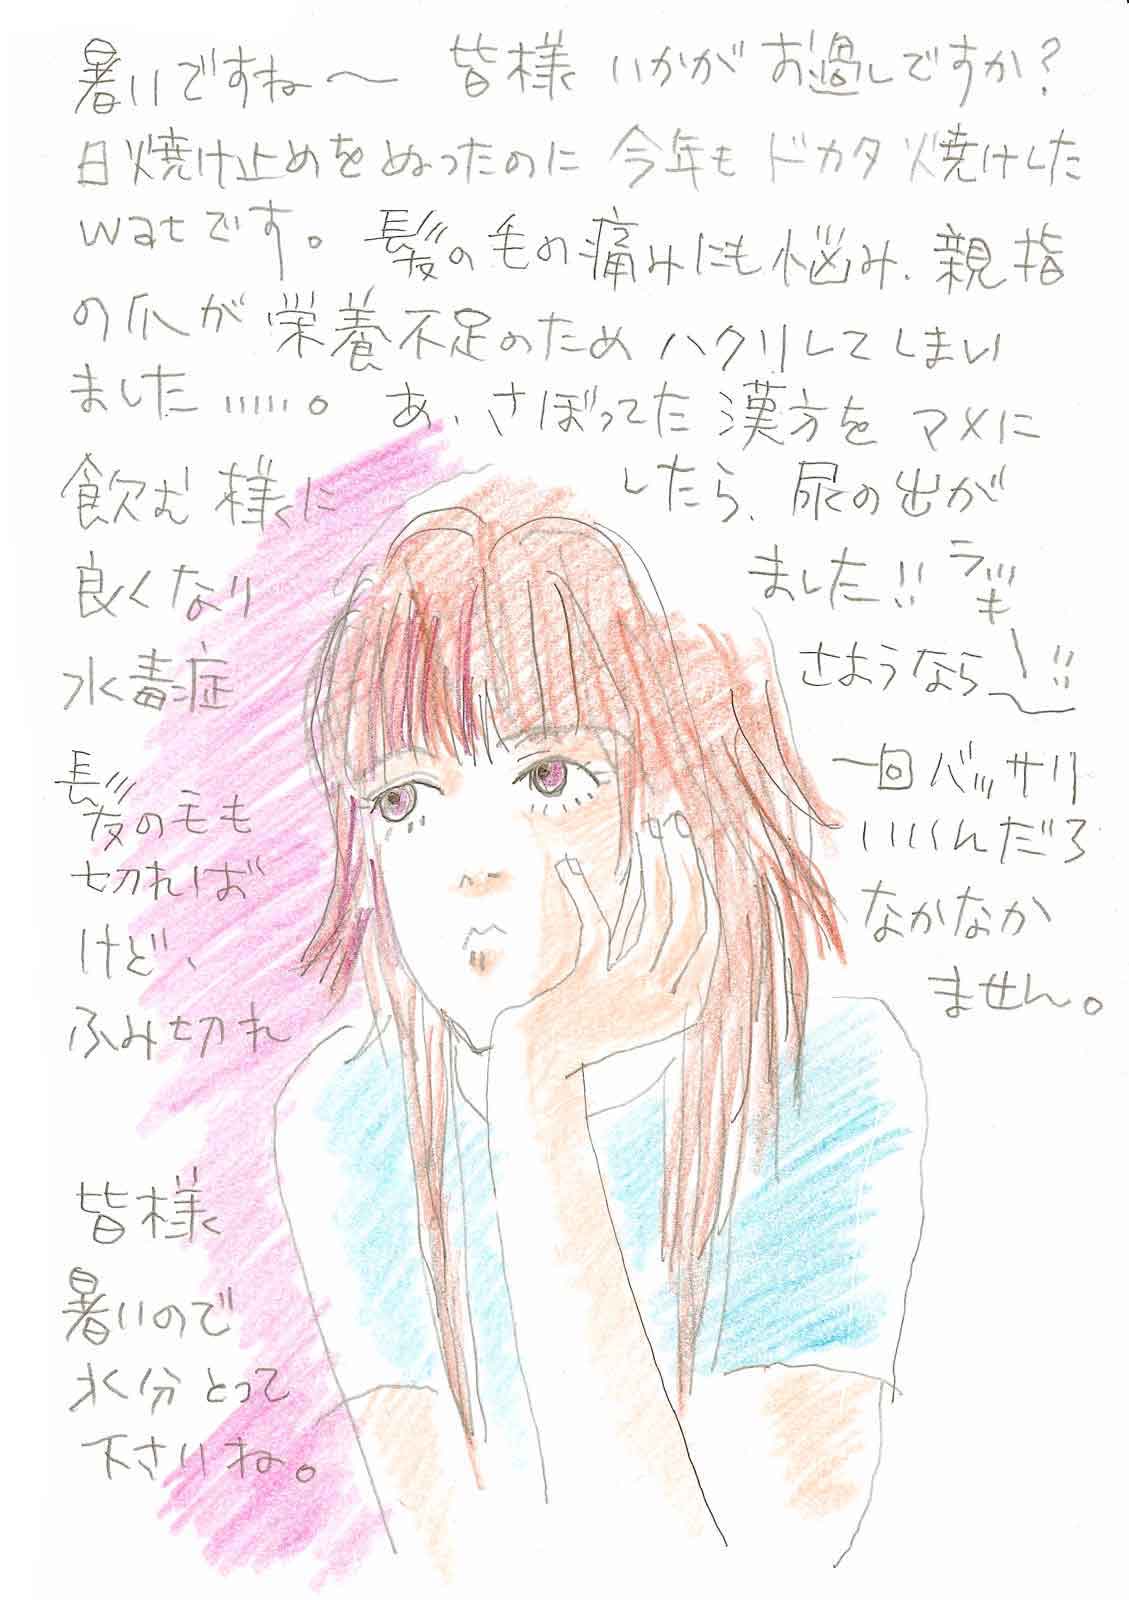 暑いですね〜 皆様 いかがお過しですか?
日焼け止めをぬったのに 今年も ドカタ 焼けした
watです。髪の毛の痛みにも悩み、親指
の爪が 栄養不足のため ハクリしてしまい
ました……。 あ、さぼってた 漢方を マメに
飲む 様に したら、尿の出が
良くなり ました!! ラッキー!!
水毒症 さようなら〜
髪の毛も 一回 バッサリ
切れば いいんだろ
けど、 なかなか
ふみ切れ ません。
皆様
暑いので
水分 とって
下さいね。